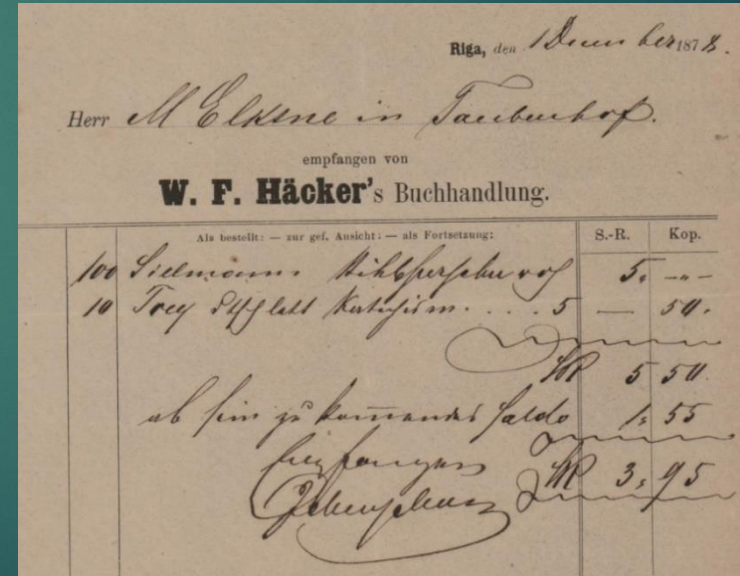 Riga, den 1 December 1878.
Herr M Elksne in Taubenhof.
empfangen von
W. F. Häcker's Buchhandlung.
Als bestellt: — zur gef. Ansicht: — als Fortsetzung: S.-R. Kop.
100 5. -„-
10 Trey lett Katechism. . . . . 5 — 50.
SR 5 50.
ab Ihm zu kommendes Saldo 1: 55
Empfangen SR 3: 95